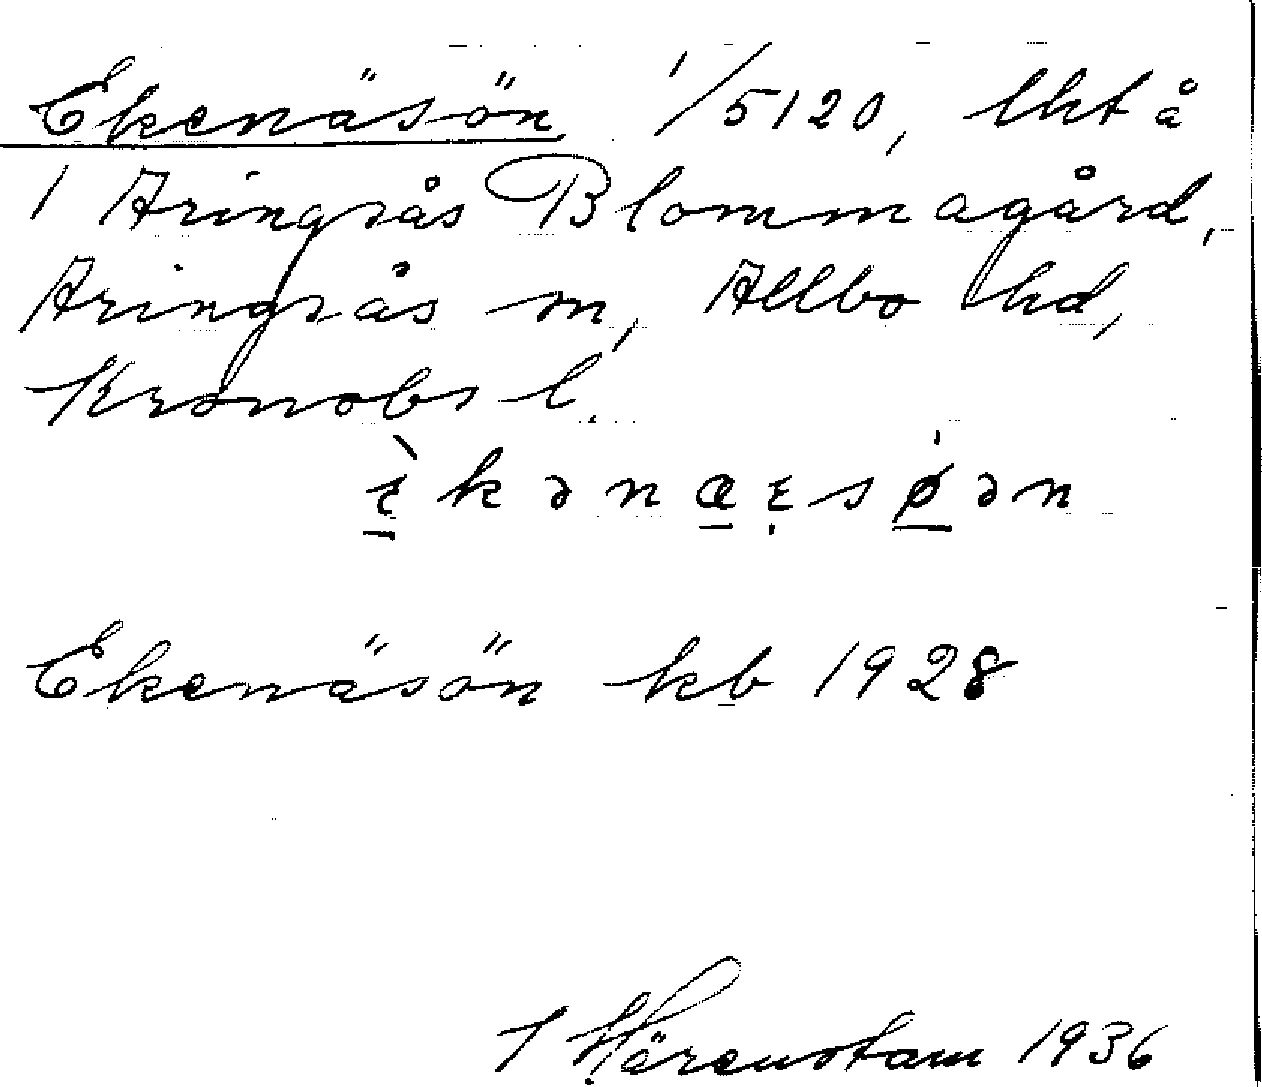 Ekenäsön 1/5120, lht å
1 Aringsås Blommagård,
Aringsås sn, Allbo hd,
Kronobs l.
Ekenäsön kb 1928
1936